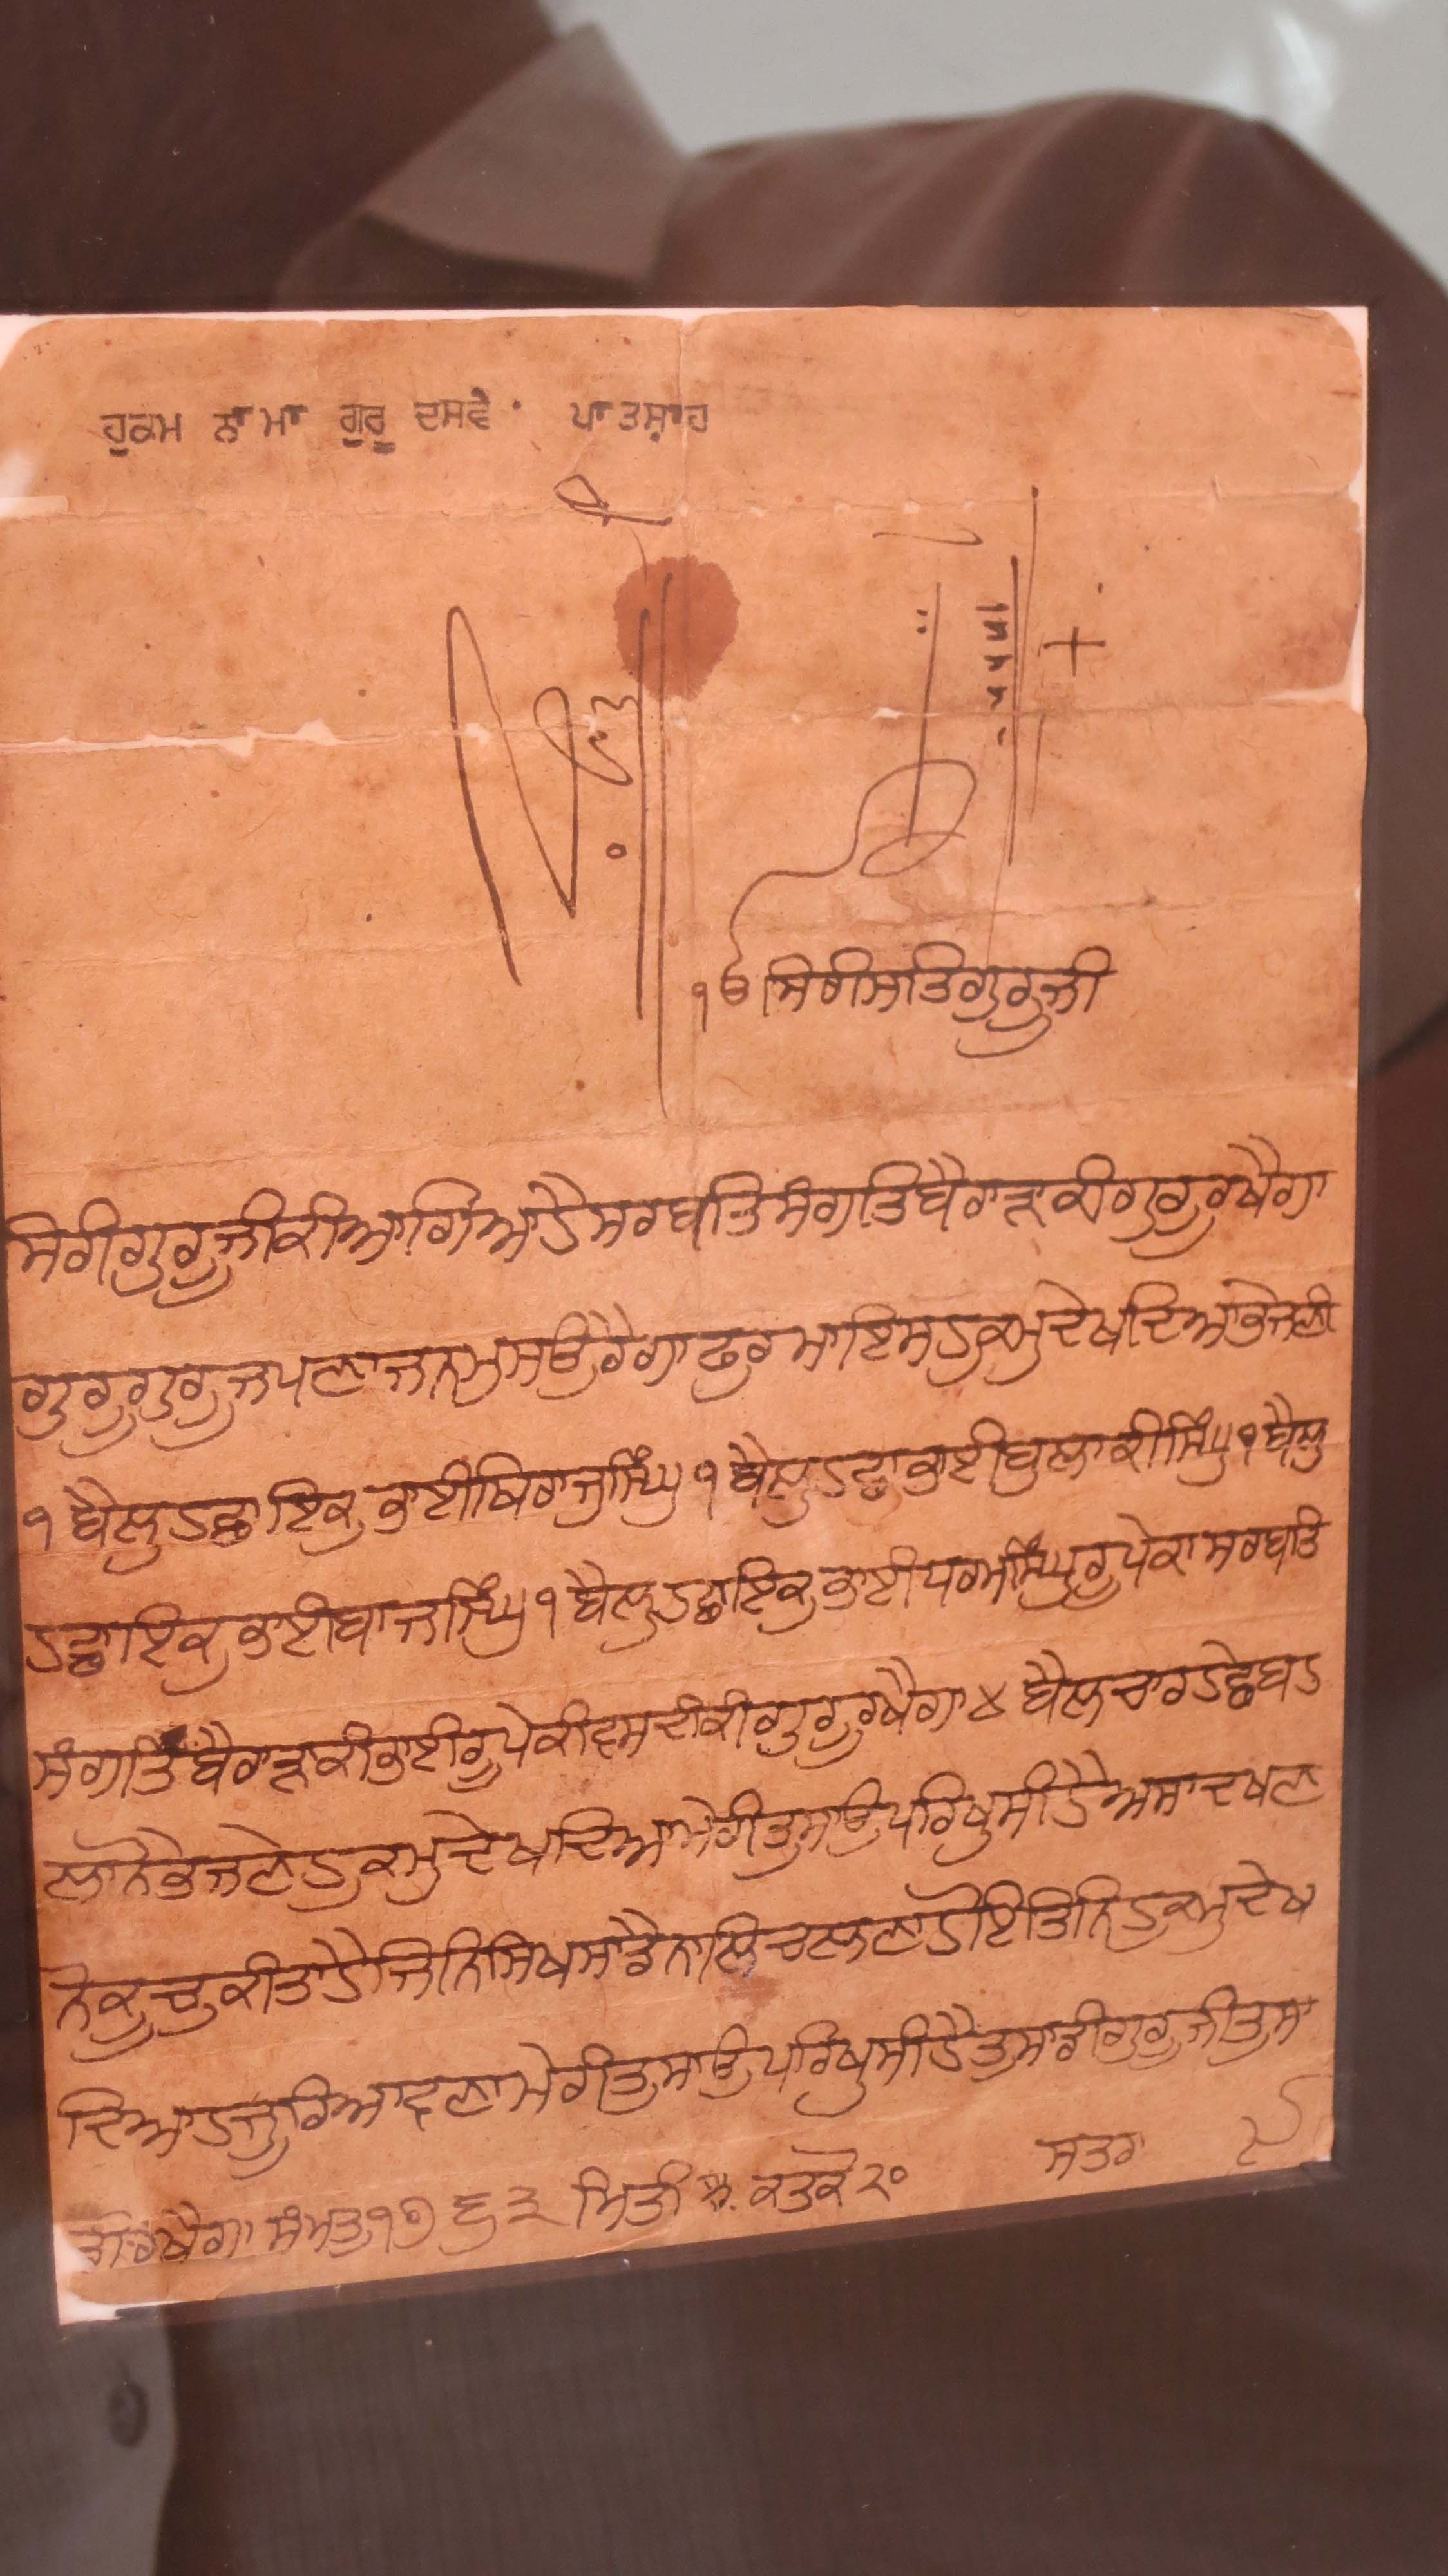 ਹੁਕਮ ਨਾਮਾ ਗੁਰੂ ਦਸਵੇਂ ਪਾਤਸ਼ਾਹ
ੴ ਸਿਰੀ ਸਤਿਗੁਰੂ ਜੀ
ਸਿਰੀ ਗੁਰੂ ਜੀ ਕੀ ਆਗਿਆ ਹੈ ਸਰਬਤਿ ਸੰਗਤਿ ਬੈਰਾੜ ਕੀ ਗੁਰੂ ਰਖੈਗਾ
ਗੁਰੂ ਗੁਰੂ ਜਪਣਾ ਜਨਮੁ ਸਉਰੈਗਾ ਫੁਰਮਾਇਸ ਹੁਕਮੁ ਦੇਖਦਿਆ ਭੇਜਣੀ
੧ ਬੈਲੁ ਹਛਾ ਇਕੁ ਭਾਈ ਖਿਰਾਜੁ ਸਿੰਘੁ ੧ ਬੈਲੁ ਹਛਾ ਭਾਈ ਬੁਲਾਕੀ ਸਿੰਘੁ ੧ ਬੈਲੁ
ਹਛਾ ਇਕੁ ਭਾਈ ਬਾਜ ਸਿੰਘੁ ੧ ਬੈਲੁ ਹਛਾ ਇਕੁ ਭਾਈ ਧਰਮ ਸਿੰਘੁ ਰੂਪੇ ਕਾ ਸਰਬਤਿ
ਸੰਗਤਿ ਬੈਰਾੜ ਕੀ ਭਾਈ ਰੂਪੇ ਕੀ ਵਸਦੀ ਕੀ ਗੁਰੂ ਰਖੈਗਾ ੪ ਬੈਲ ਚਾਰ ਹਛੇ ਬਹ
ਲਾਨੈ ਭੇਜਣੇ ਹੁਕਮੁ ਦੇਖਦਿਆ ਮੇਰੀ ਤੁਸਾ ਉਪਰਿ ਖੁਸੀ ਹੈ ਅਸਾ ਦਖਣ
ਨੋ ਕੂਚੁ ਕੀਤਾ ਹੈ ਜਿਨਿ ਸਿਖ ਸਾਡੈ ਨਾਲਿ ਚਲਣਾ ਹੋਇ ਤਿਨਿ ਹੁਕਮੁ ਦੇਖ
ਦਿਆ ਹਜੂਰਿ ਆਵਣਾ ਮੇਰੀ ਤੁਸਾ ਉਪਰਿ ਖੁਸੀ ਹੈ ਤੁਸਾਡੀ ਗੁਰੂ ਜੀ ਤੁਸਾ
ਰਖੈਗਾ ਸੰਮਤੁ ੧੭੬੩ ਮਿਤੀ ਕਤਕੋ ੨੦ ਸਤਰਾ